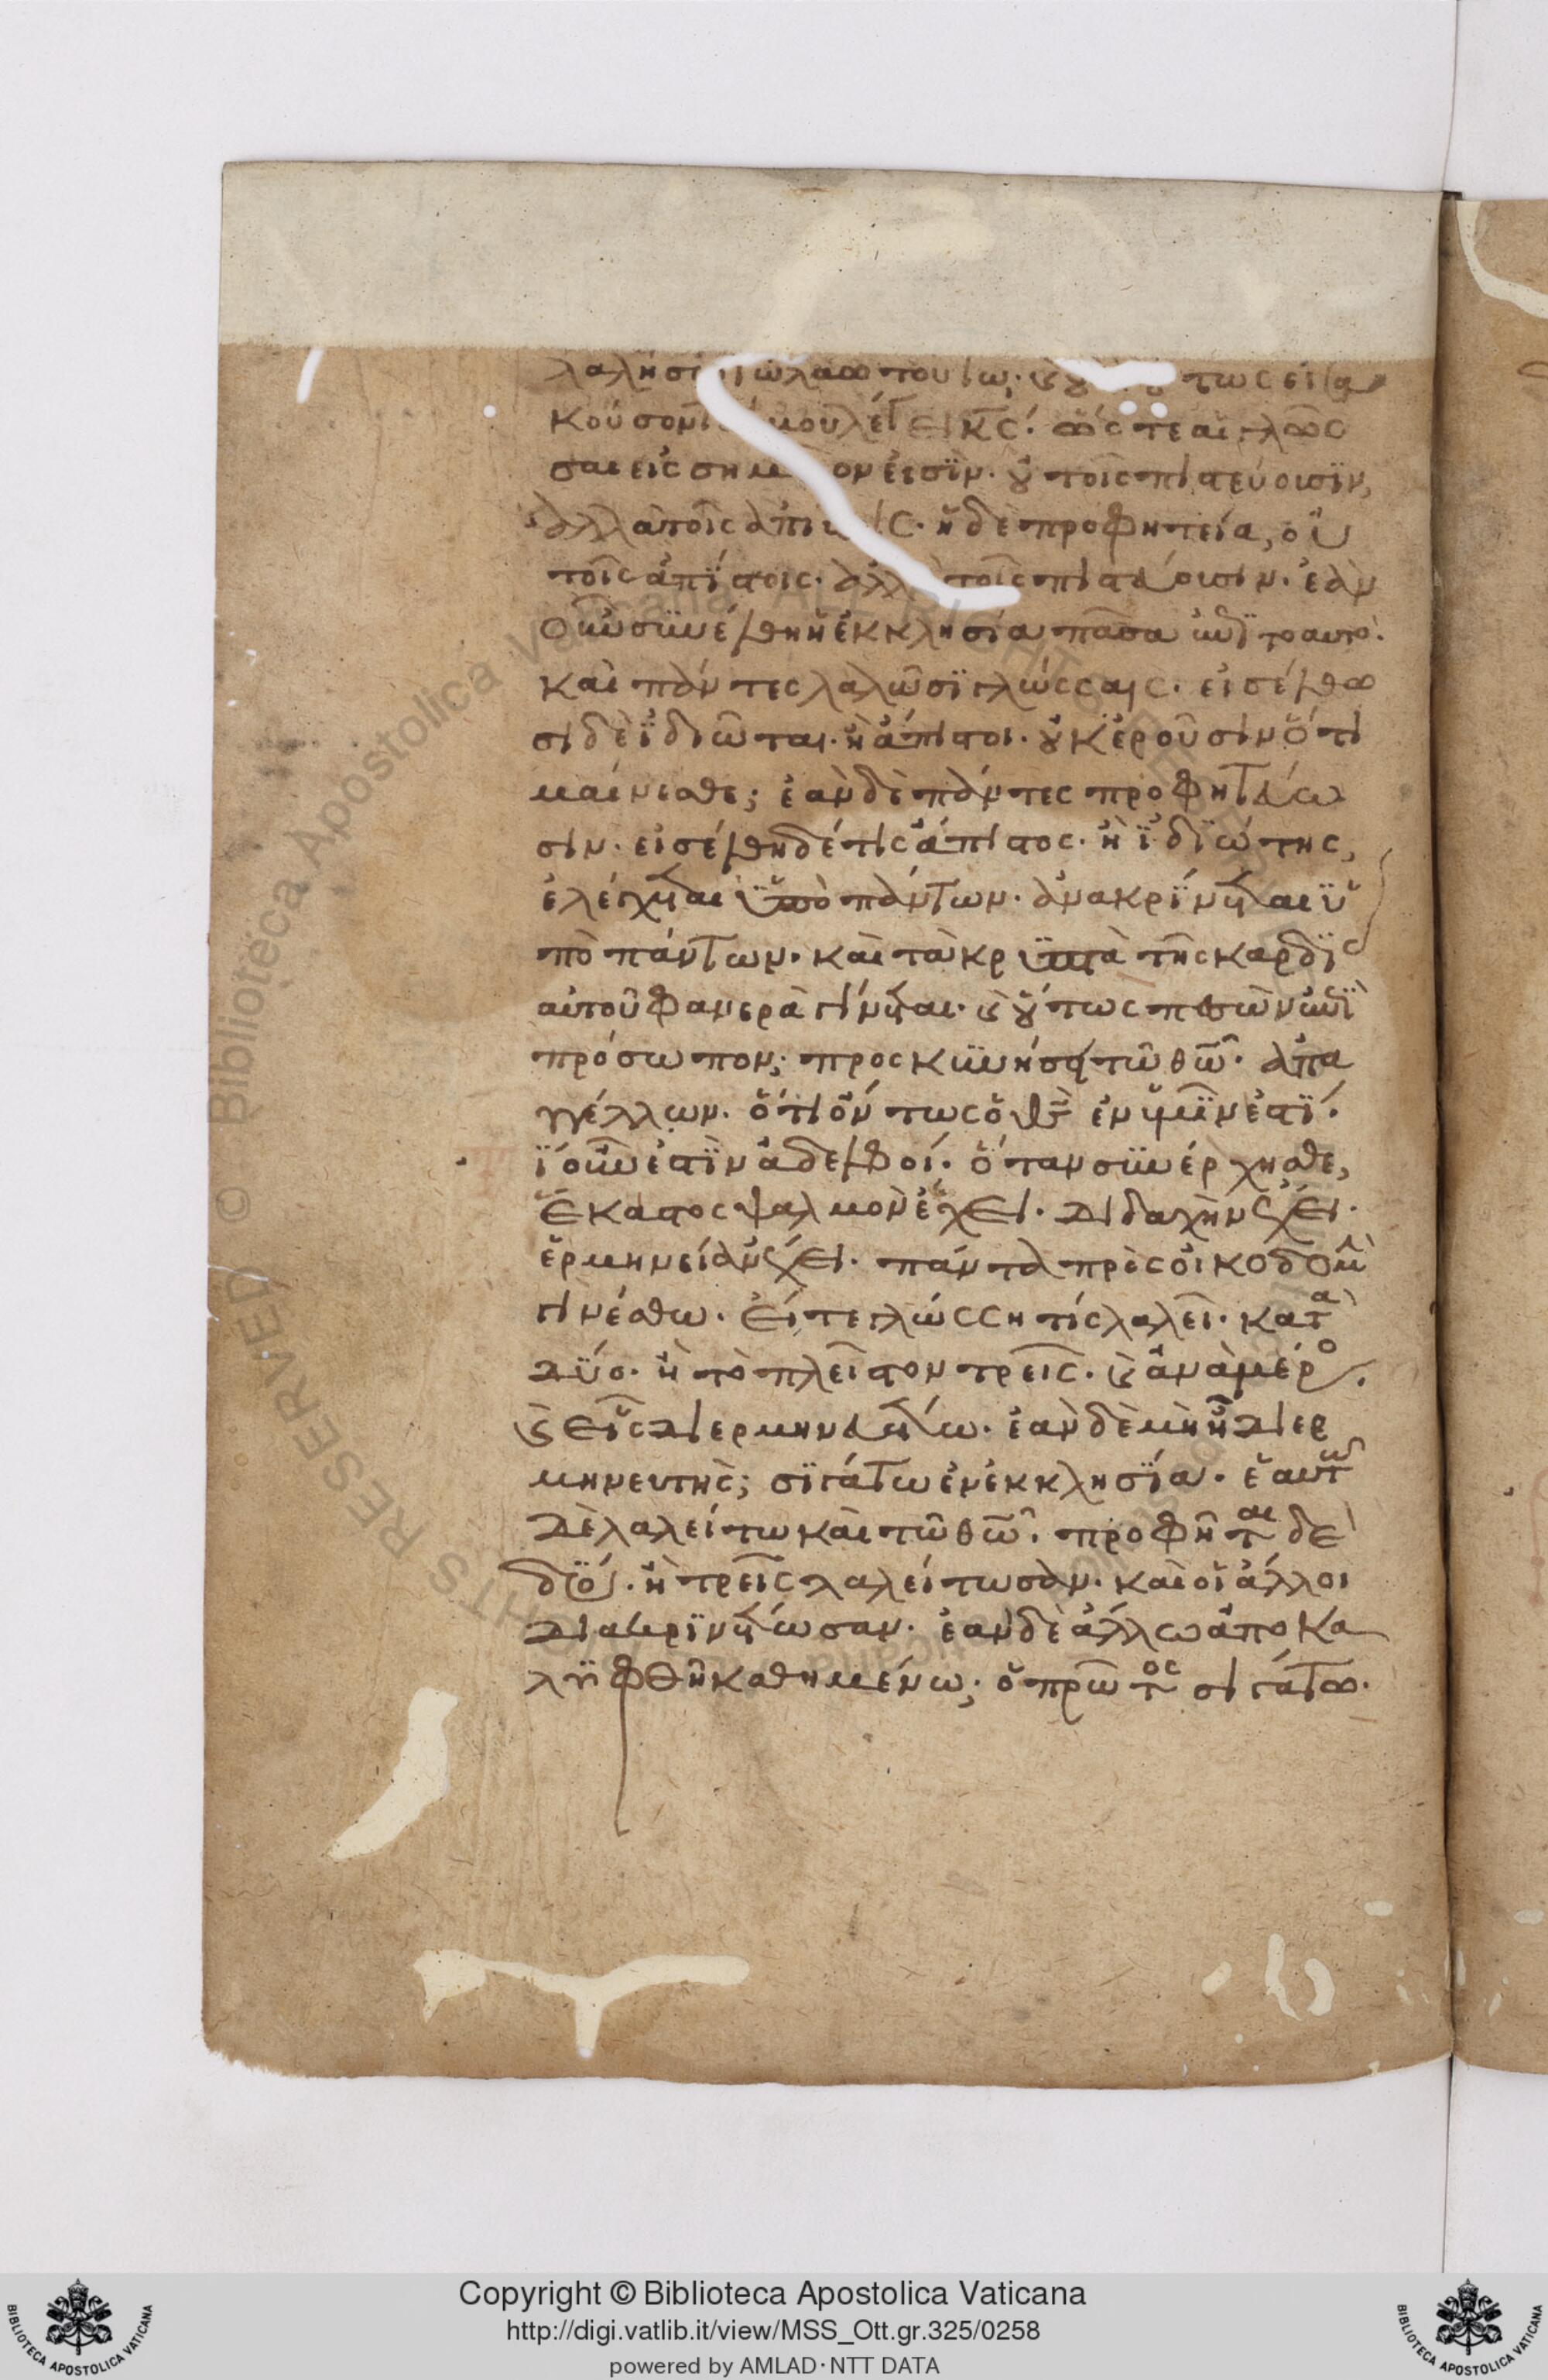 λαλήσω τῶ λαῶ τούτω· οὕτως εἰσα
κούσονταί μου λέγει κς· ὥστε αἱ γλῶσ
σαι εἰς σημεῖον εἰσὶν· οὐ τοῖς πιστεύουσιν,
ἀλλὰ τοῖς ἀπίστοις· ἡ δὲ προφητεία, οὐ
τοῖς ἀπίστοις· ἀλλὰ τοῖς πιστεύουσιν· ἐὰν
οὖν συνέλθη ἡ ἐκκλησία πᾶσα ἐπὶ τὸ αυτὸ·
καὶ πάντες λαλῶσι γλώσσαις· εἰσέλθω
σι δὲ ἰδιῶται· ἢ ἄπιστοι· οὐκ ἐροῦσιν ὅτι
μαίνεσθε; ἐὰν δὲ πάντες προφητεύω
σιν· εἰσέλθη δέ τις ἄπιστος· ἢ ἰδιώτης,
ἐλέγχεται ὑπὸ πάντων· ἀνακρίνεται ὑ
πὸ πάντων· καὶ τὰ κρυπτὰ τῆς καρδίας
αὐτοῦ φανερὰ γίνεται· ϗ οὕτως πεσὼν ἐπὶ
πρόσωπον· προσκυνήσει τῶ θῶ· ἀπα
γγέλλων· ὅτι ὄντως ὁ θς ἐν ὑμῖν ἐστί·
τί οὖν ἐστὶν ἀδελφοί· ὅταν συνέρχησθε,
ἕκαστος ψαλμὸν ἔχει· διδαχὴν ἔχει·
ἑρμηνείαν ἔχει· πάντα πρὸς οἰκοδομὴν
γινέσθω· εἴτε γλώσση τίς λαλεῖ· κατὰ
δύο· ἢ τὸ πλεῖστον τρεῖς· ϗ ἀνὰ μέρος·
ϗ εἷς διερμηνευέτω· ἐὰν δὲ μὴ ἦ διερ
μηνευτής; σιγάτω ἐν ἐκκλησία· ἑαυτῶ
δὲ λαλείτω καὶ τῶ θῶ· προφῆται δὲ
δύο· ἢ τρεῖς λαλείτωσαν· καὶ οἱ ἄλλοι
διακρινέτωσαν· ἐὰν δὲ ἄλλω ἀποκα
λυφθῆ καθημένω· ὁ πρῶτος σιγάτω·
Copyright © Biblioteca Apostolica Vaticana
http://digi.vatlib.it/view/MSS_Ott.gr.325/0258
powered by AMLAD·NTT DATA